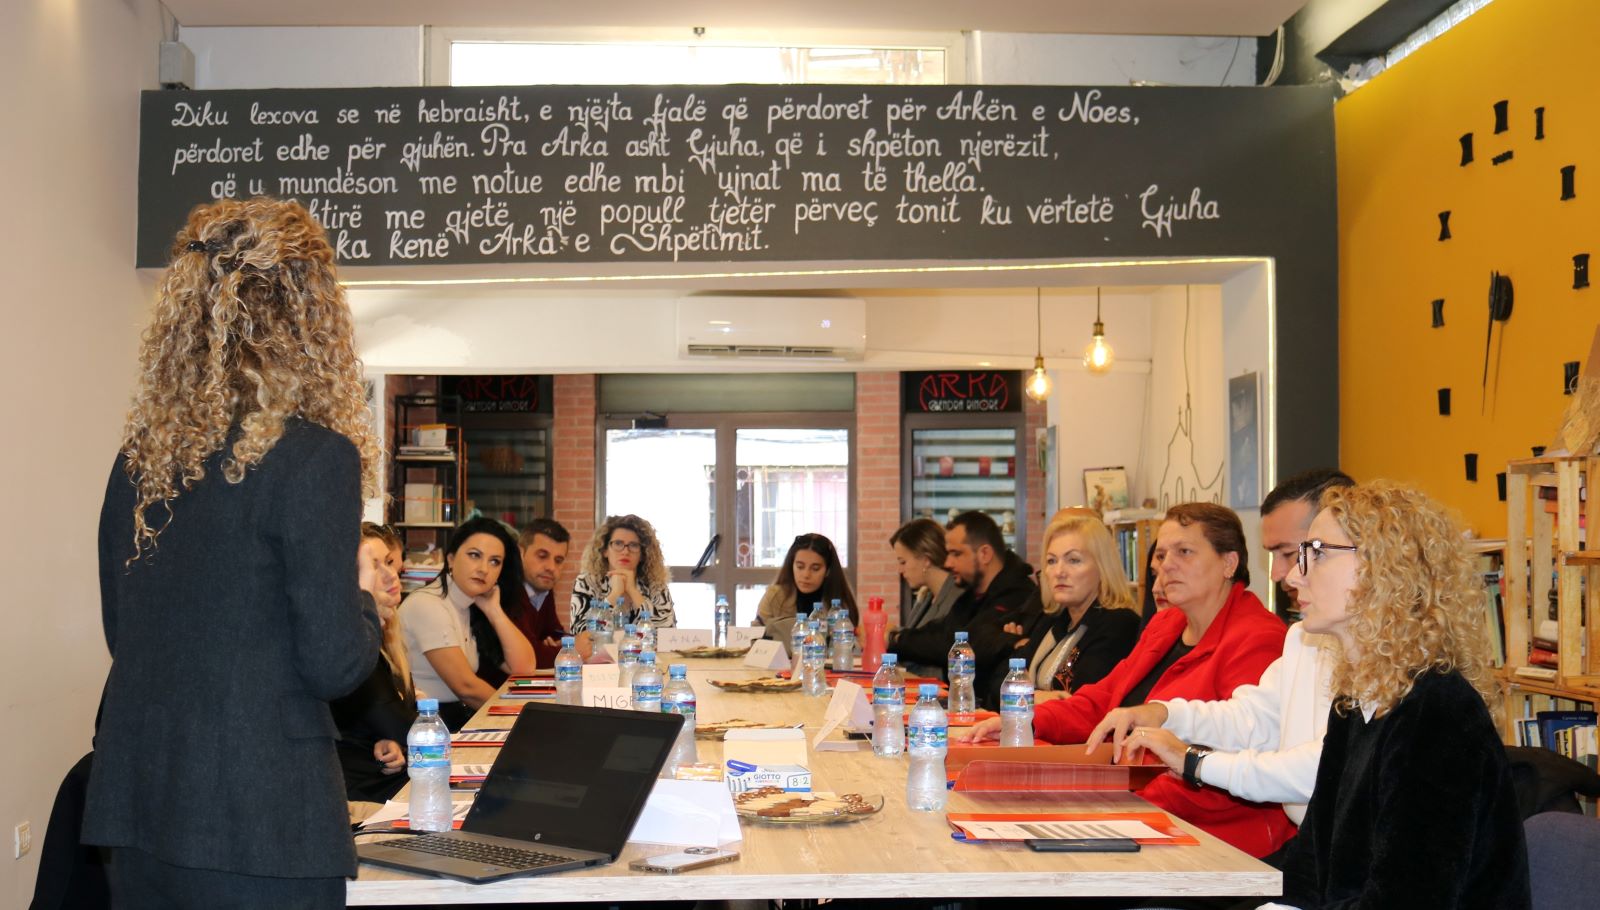 Diku lexova se në hebraisht, e njëjta fjalë që përdoret për Arkën e Noes,
përdoret edhe për gjuhën. Pra Arka asht Gjuha, që i shpëton njerëzit,
që u mundëson me notue edhe mbi ujnat ma të thella.
me gjetë një popull tjetër përveç tonit ku vërtetë Gjuha
ka kenë Arka e Shpëtimit.
ARKA
ARKA
QENDRA RINORE
ANA
MIGE
GIOTTO
8.2
hp